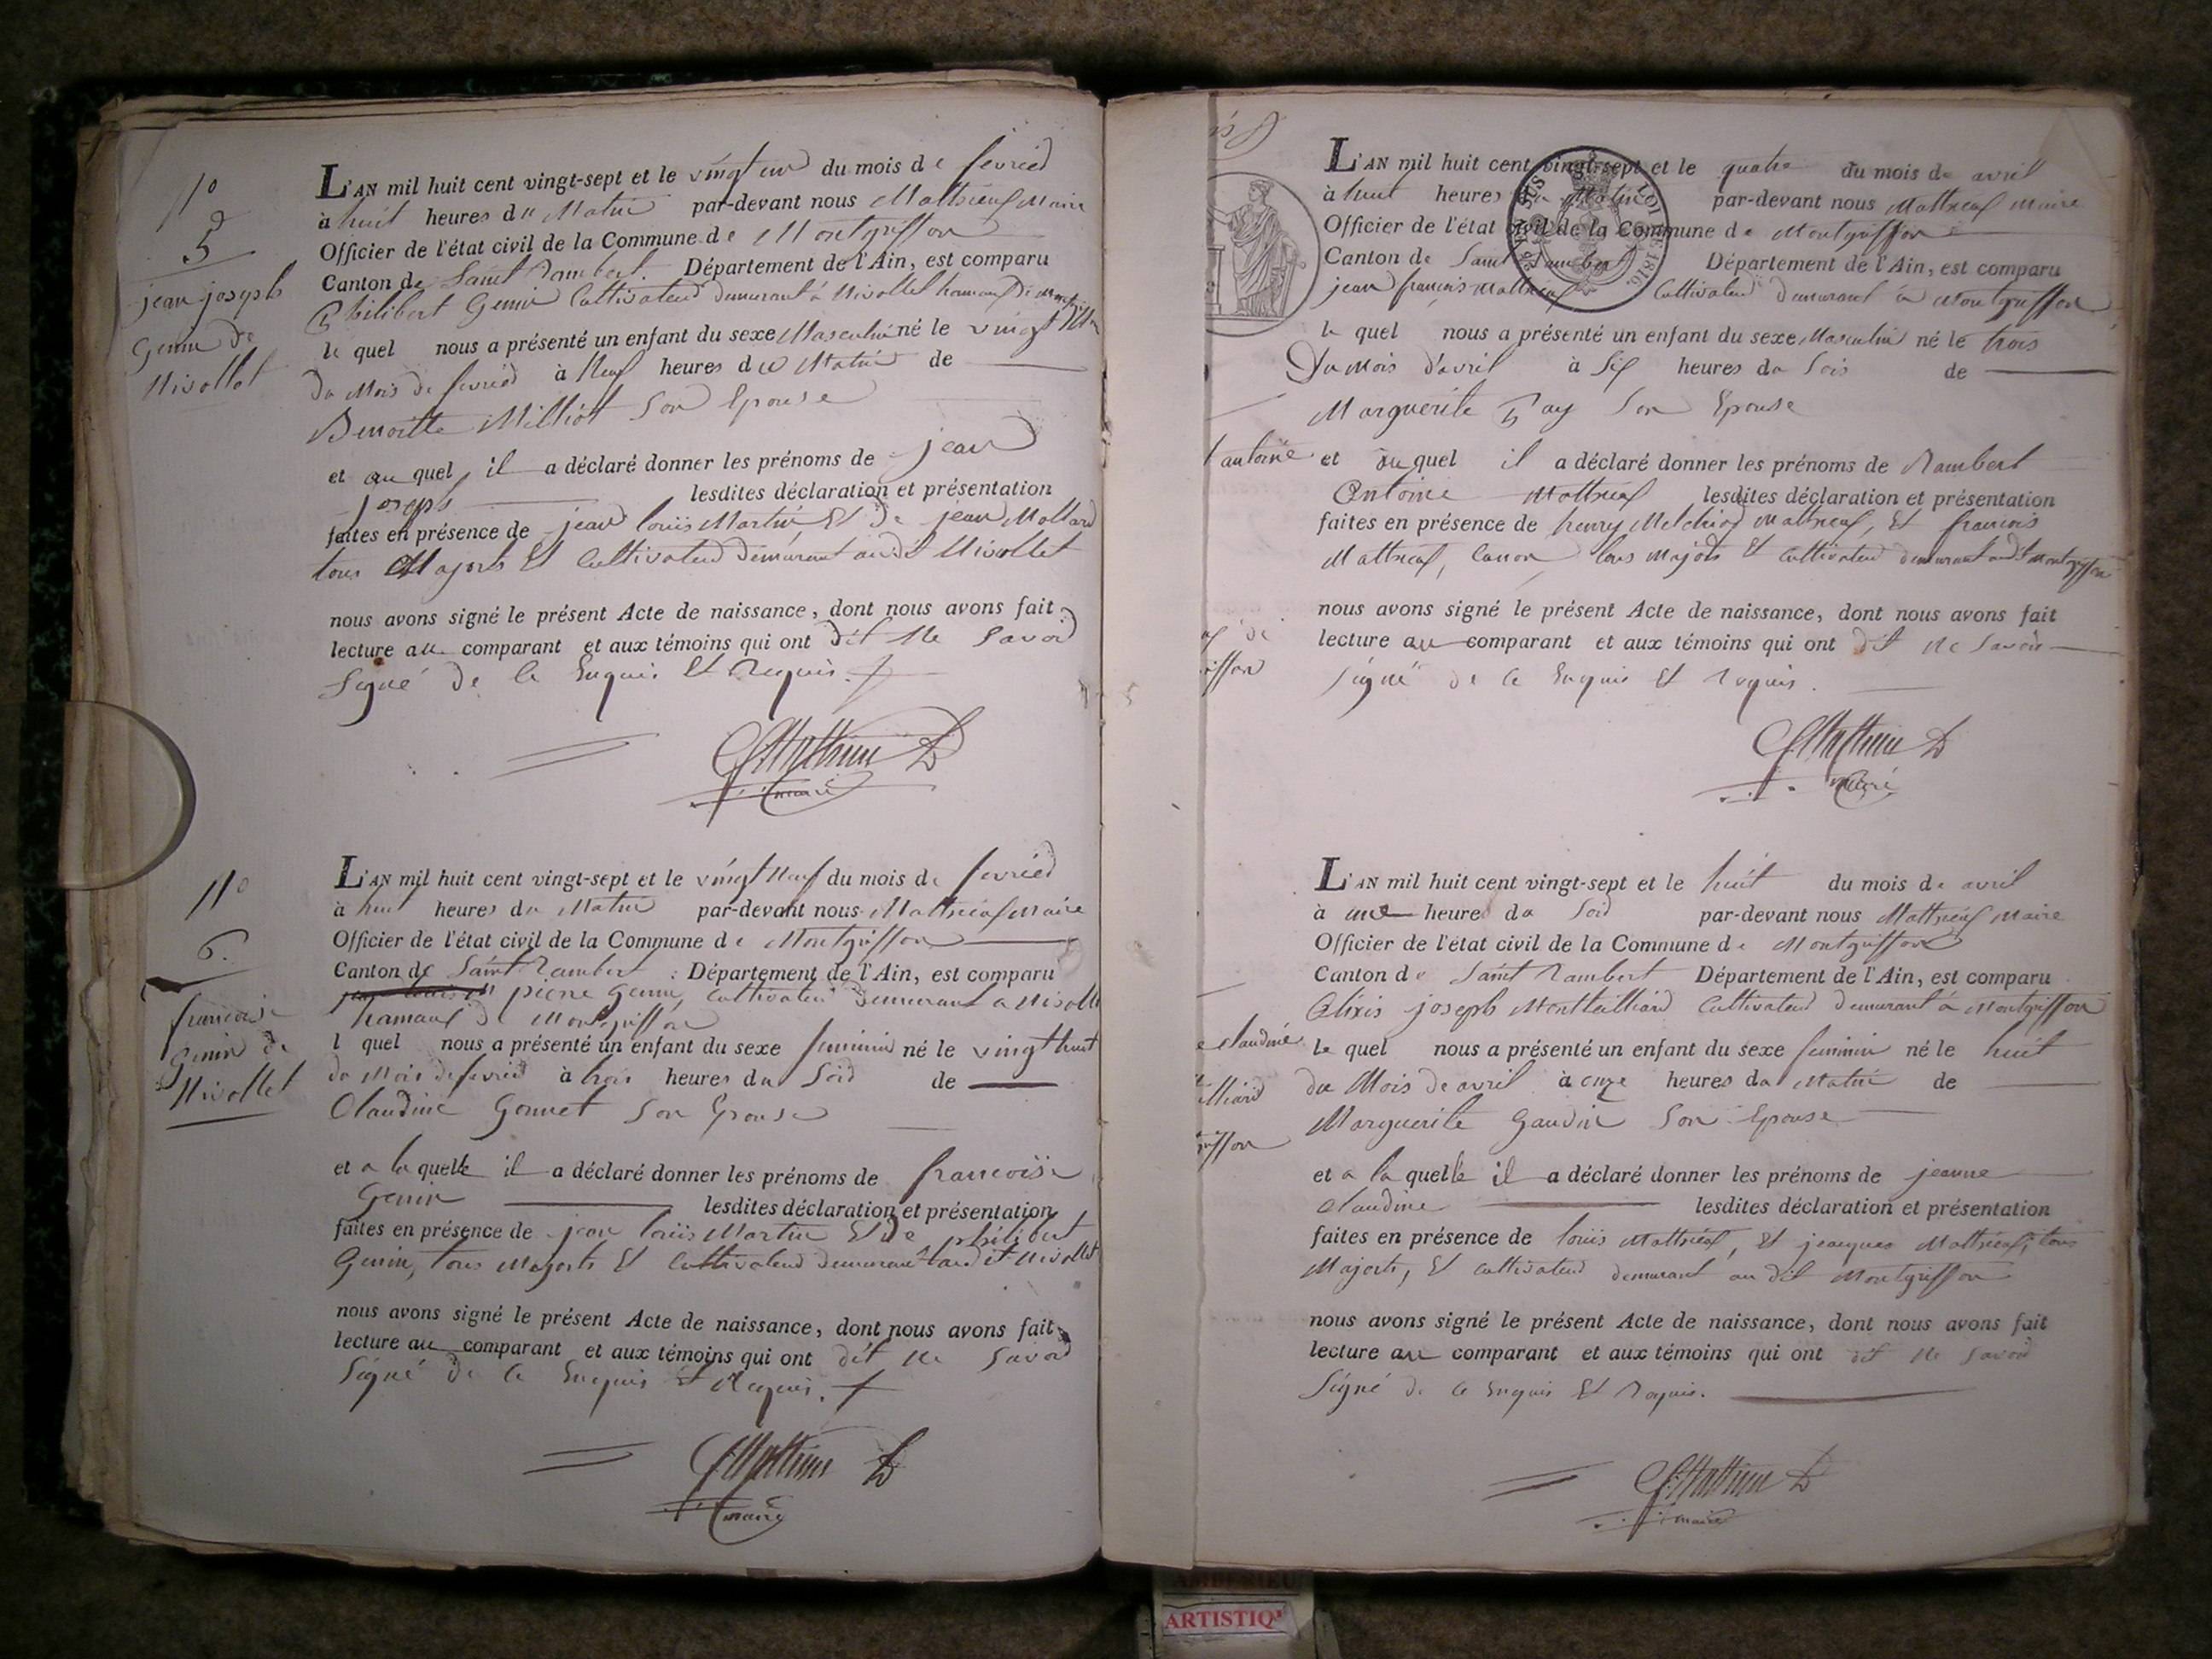 N°
5
jean joseph
Genin de
Nivollet
L'AN mil huit cent vingt-sept et le vingt un du mois de fevried
à huit heures du Matin par-devant nous Matthieux Maire
Officier de l'état civil de la Commune de Montgriffon
Canton de Saint Rambert. Département de l'Ain, est comparu
Philibert Genin Cultivateud demeurant à Nivollet hamaux de
le quel nous a présenté un enfant du sexe Masculin né le vingt
du Mois de fevried à Neuf heures du Matin de
Benoitte Milliot Son Epouse
et au quel il a déclaré donner les prénoms de jean
joseph lesdites déclaration et présentation
faites en présence de jean louis Martin Et De jean Mollard
tous Majors Et Cultivateud demeurant audit Nivollet
nous avons signé le présent Acte de naissance, dont nous avons fait
lecture au comparant et aux témoins qui ont dit Ne Savoid
Signé de Ce Enquis Et Requis.
Matthieu
maire
N°
6.
francoise
Genin de
Nivollet
L'AN mil huit cent vingt-sept et le vingt Neuf du mois de fevried
à huit heures du Matin par-devant nous Matthieux Maire
Officier de l'état civil de la Commune de Montgriffon
Canton de Saint Rambert : Département de l'Ain, est comparu
pierre Genin, Cultivateud demeurant a Nivollet
hamaux de Montgriffon
l quel nous a présenté un enfant du sexe feminin né le vingt huit
du Mois de fevried à trois heures du Soid de
Claudine Gonnet Son Epouse
et a la quelle il a déclaré donner les prénoms de francoise
Genin lesdites déclaration et présentation
faites en présence de jean louis Martin Et De philibert
Genin, tous Majorts Et Cultivateud demeurant audit Nivollet
nous avons signé le présent Acte de naissance, dont nous avons fait
lecture au comparant et aux témoins qui ont dit Ne Savoid
Signé de Ce Enquis Et Requis.
Matthieu
maire
L'AN mil huit cent vingt-sept et le quatre du mois de avril
à huit heures du Matin par-devant nous Matthieux Maire
Officier de l'état civil de la Commune de Montgriffon
Canton de Saint Rambert Département de l'Ain, est comparu
jean françois Matthieux Cultivateud demeurant à Montgriffon
le quel nous a présenté un enfant du sexe Masculin né le trois
Du Mois d'avril à Six heures du Soid de
Marguerite Pay Son Epouse
LOI DE 1816
antoine
et au quel il a déclaré donner les prénoms de Rambert
Antoine Matthieux lesdites déclaration et présentation
faites en présence de henry Melchiod Matthieux, Et francois
Matthieux, tous Majorts Et Cultivateud demeurant audit Montgriffon
nous avons signé le présent Acte de naissance, dont nous avons fait
lecture au comparant et aux témoins qui ont dit Ne Savoid
Signé de Ce Enquis Et Requis.
Matthieu
Maire
L'AN mil huit cent vingt-sept et le huit du mois de avril
à une heures du Soid par-devant nous Matthieux Maire
Officier de l'état civil de la Commune de Montgriffon
Canton de Saint Rambert Département de l'Ain, est comparu
Alixis joseph Montteilliard Cultivateud demeurant à Montgriffon
claudine
le quel nous a présenté un enfant du sexe feminin né le huit
du Mois de avril à onze heures du Matin de
Marguerite Gaudin Son Epouse
et a la quelle il a déclaré donner les prénoms de jeanne
claudine lesdites déclaration et présentation
faites en présence de louis Matthieux, Et jeacques Matthieux, tous
Majorts, Et Cultivateud demeurant au dit Montgriffon
nous avons signé le présent Acte de naissance, dont nous avons fait
lecture au comparant et aux témoins qui ont dit Ne Savoid
Signé de Ce Enquis Et Requis.
Matthieu
maire
ARTISTIQ